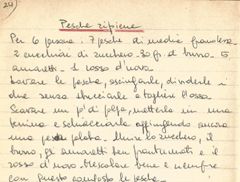 24
Pesche ripiene
Per 6 persone. 7 pesche di media grandezza
2 cucchiai di zucchero. 30 gr. di burro. 5
amaretti. 1 rosso d'uovo.
Lavare le pesche, asciugarle, dividerle in
due senza sbucciarle e togliere l'osso.
Scavare un pò di polpa, metterla in una
terrina e schiacciarla aggiungendo ancora
una pesca pelata. Unire lo zucchero, il
burro, gli amaretti ben frantumati e il
rosso d'uovo. Mescolare bene e riempire
con questo composto le pesche.